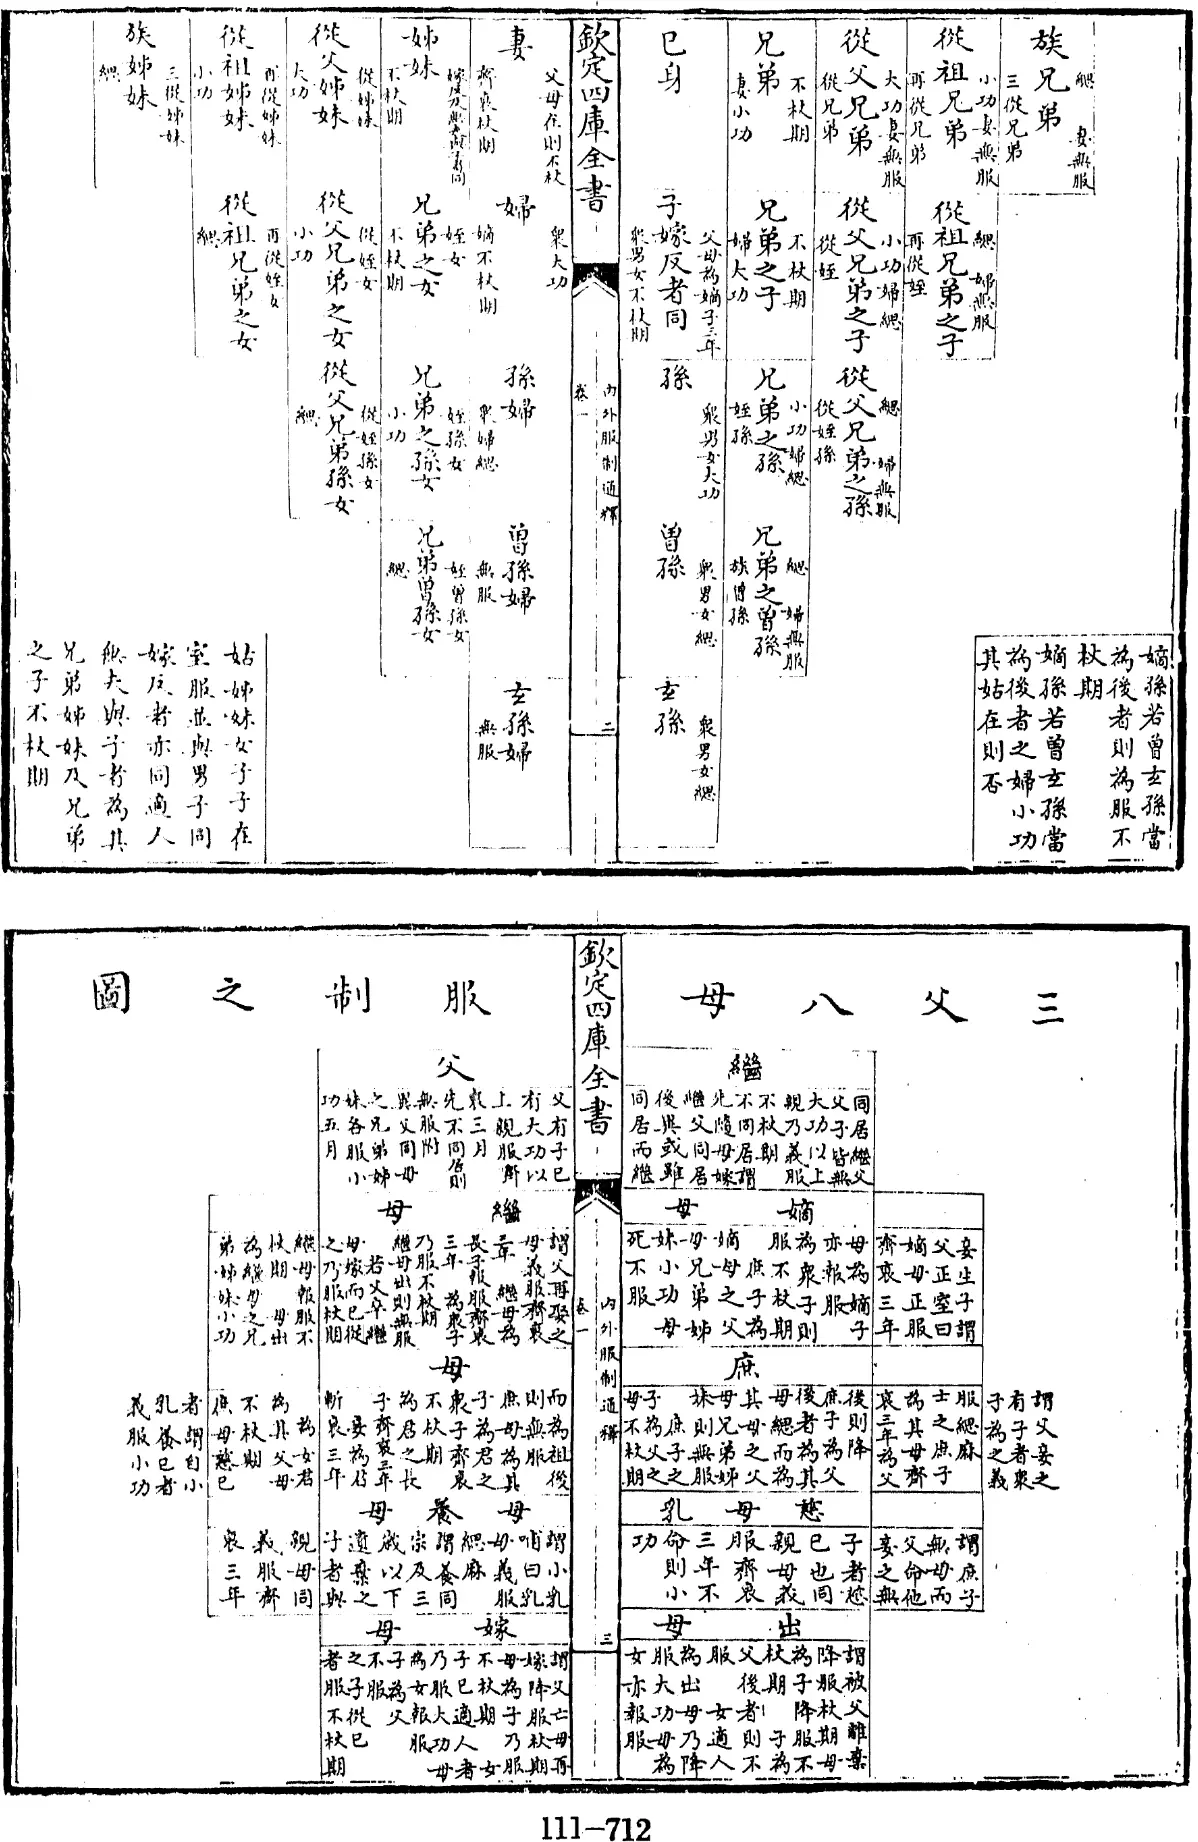 族兄弟
緦
妻無服
三從兄弟
從祖兄弟
小功妻無服
再從兄弟
從祖兄弟之子
緦
婦無服
再從姪
從父兄弟
大功妻無服
從兄弟
從父兄弟之子
小功婦緦
從姪
從父兄弟之孫
緦
婦無服
從姪孫
兄弟
不杖期
妻小功
兄弟之子
不杖期
婦大功
兄弟之孫
小功婦緦
姪孫
兄弟之曾孫
緦
婦無服
族曾孫
己身
子嫁反者同
父母為嫡子三年
衆男女不杖期
孫
衆男女大功
曾孫
衆男女緦
玄孫
衆男女緦
嫡孫若曾玄孫當
為後者則為服不
杖期
嫡孫若曾玄孫當
為後者之婦小功
其姑在則否
欽定四庫全書
內外服制通釋
卷一
二
妻
父母在則不杖
齊衰杖期
婦
衆大功
嫡不杖期
孫婦
衆婦緦
曾孫婦
無服
玄孫婦
無服
姊妹
不杖期
兄弟之女
姪女
不杖期
兄弟之孫女
姪孫女
小功
兄弟曾孫女
姪曾孫女
緦
從父姊妹
從姊妹
大功
從父兄弟之女
從姪女
小功
從父兄弟孫女
從姪孫女
緦
從祖姊妹
再從姊妹
小功
從祖兄弟之女
再從姪女
緦
族姊妹
三從姊妹
緦
姑姊妹女子子在
室服並與男子同
嫁反者亦同適人
無夫與子者為其
兄弟姊妹及兄弟
之子不杖期
三父八母服制之圖
繼父
同居繼父
父子皆無
大功以上
親乃義服
不杖期
不同居謂
先隨母嫁
繼父同居
後異或雖
同居而繼
父有子已
有大功以
上親服齊
衰三月
先不同居則
無服附
異父同母
之兄弟姊
妹各服小
功五月
嫡母
妾生子謂
父正室曰
嫡母正服
齊衰三年
母為嫡子
亦報服
為衆子則
服不杖期
庶子為
嫡母之父
母兄弟姊
妹小功母
死不服
繼母
謂父再娶之
母義服齊衰
三年 繼母為
長子報服齊衰
三年 為衆子
乃服不杖期
繼母出則無服
若父卒繼
母嫁而已從
之乃服杖期
繼母報服不
杖期 母出
為繼母之兄
弟姊妹小功
庶母
謂父妾之
有子者衆
子為之義
服緦麻
士之庶子
為其母齊
衰三年為父
後則降
庶子為父
後者為其
母緦而為
其母之父
母兄弟姊
妹則無服
庶子之
子為父之
母不杖期
而為祖後
則無服
庶母為其
子為君之
衆子齊衰
不杖期
為君之長
子齊衰三年
妾為君
斬衰三年
為女君
為其父母
不杖期
庶母慈己
者謂自小
乳養己者
義服小功
慈母
謂庶子
無母而
父命他
妾之無
子者慈
己也同
親母義
服齊衰
三年不
命則小
功
乳母
謂小乳
哺曰乳
母義服
緦麻
養母
謂養同
宗及三
歲以下
遺棄之
子者與
親母同
義服齊
衰三年
出母
謂被父離棄
降服杖期母
為子降服不
杖期 子為
父後者則不
服 女適人
為出母乃降
服大功母為
女亦報服
嫁母
謂父亡母再
嫁降服杖期
母為子乃服
不杖期 女
子已適人者
乃服大功母
為女報服
子為父
不服
之子從己
者服不杖期
欽定四庫全書
內外服制通釋
卷一
三
111-712